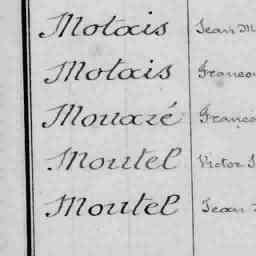 Motais Jean M
Motais Franço
Mouazé Franço
Moutel Victor J
Moutel Jean